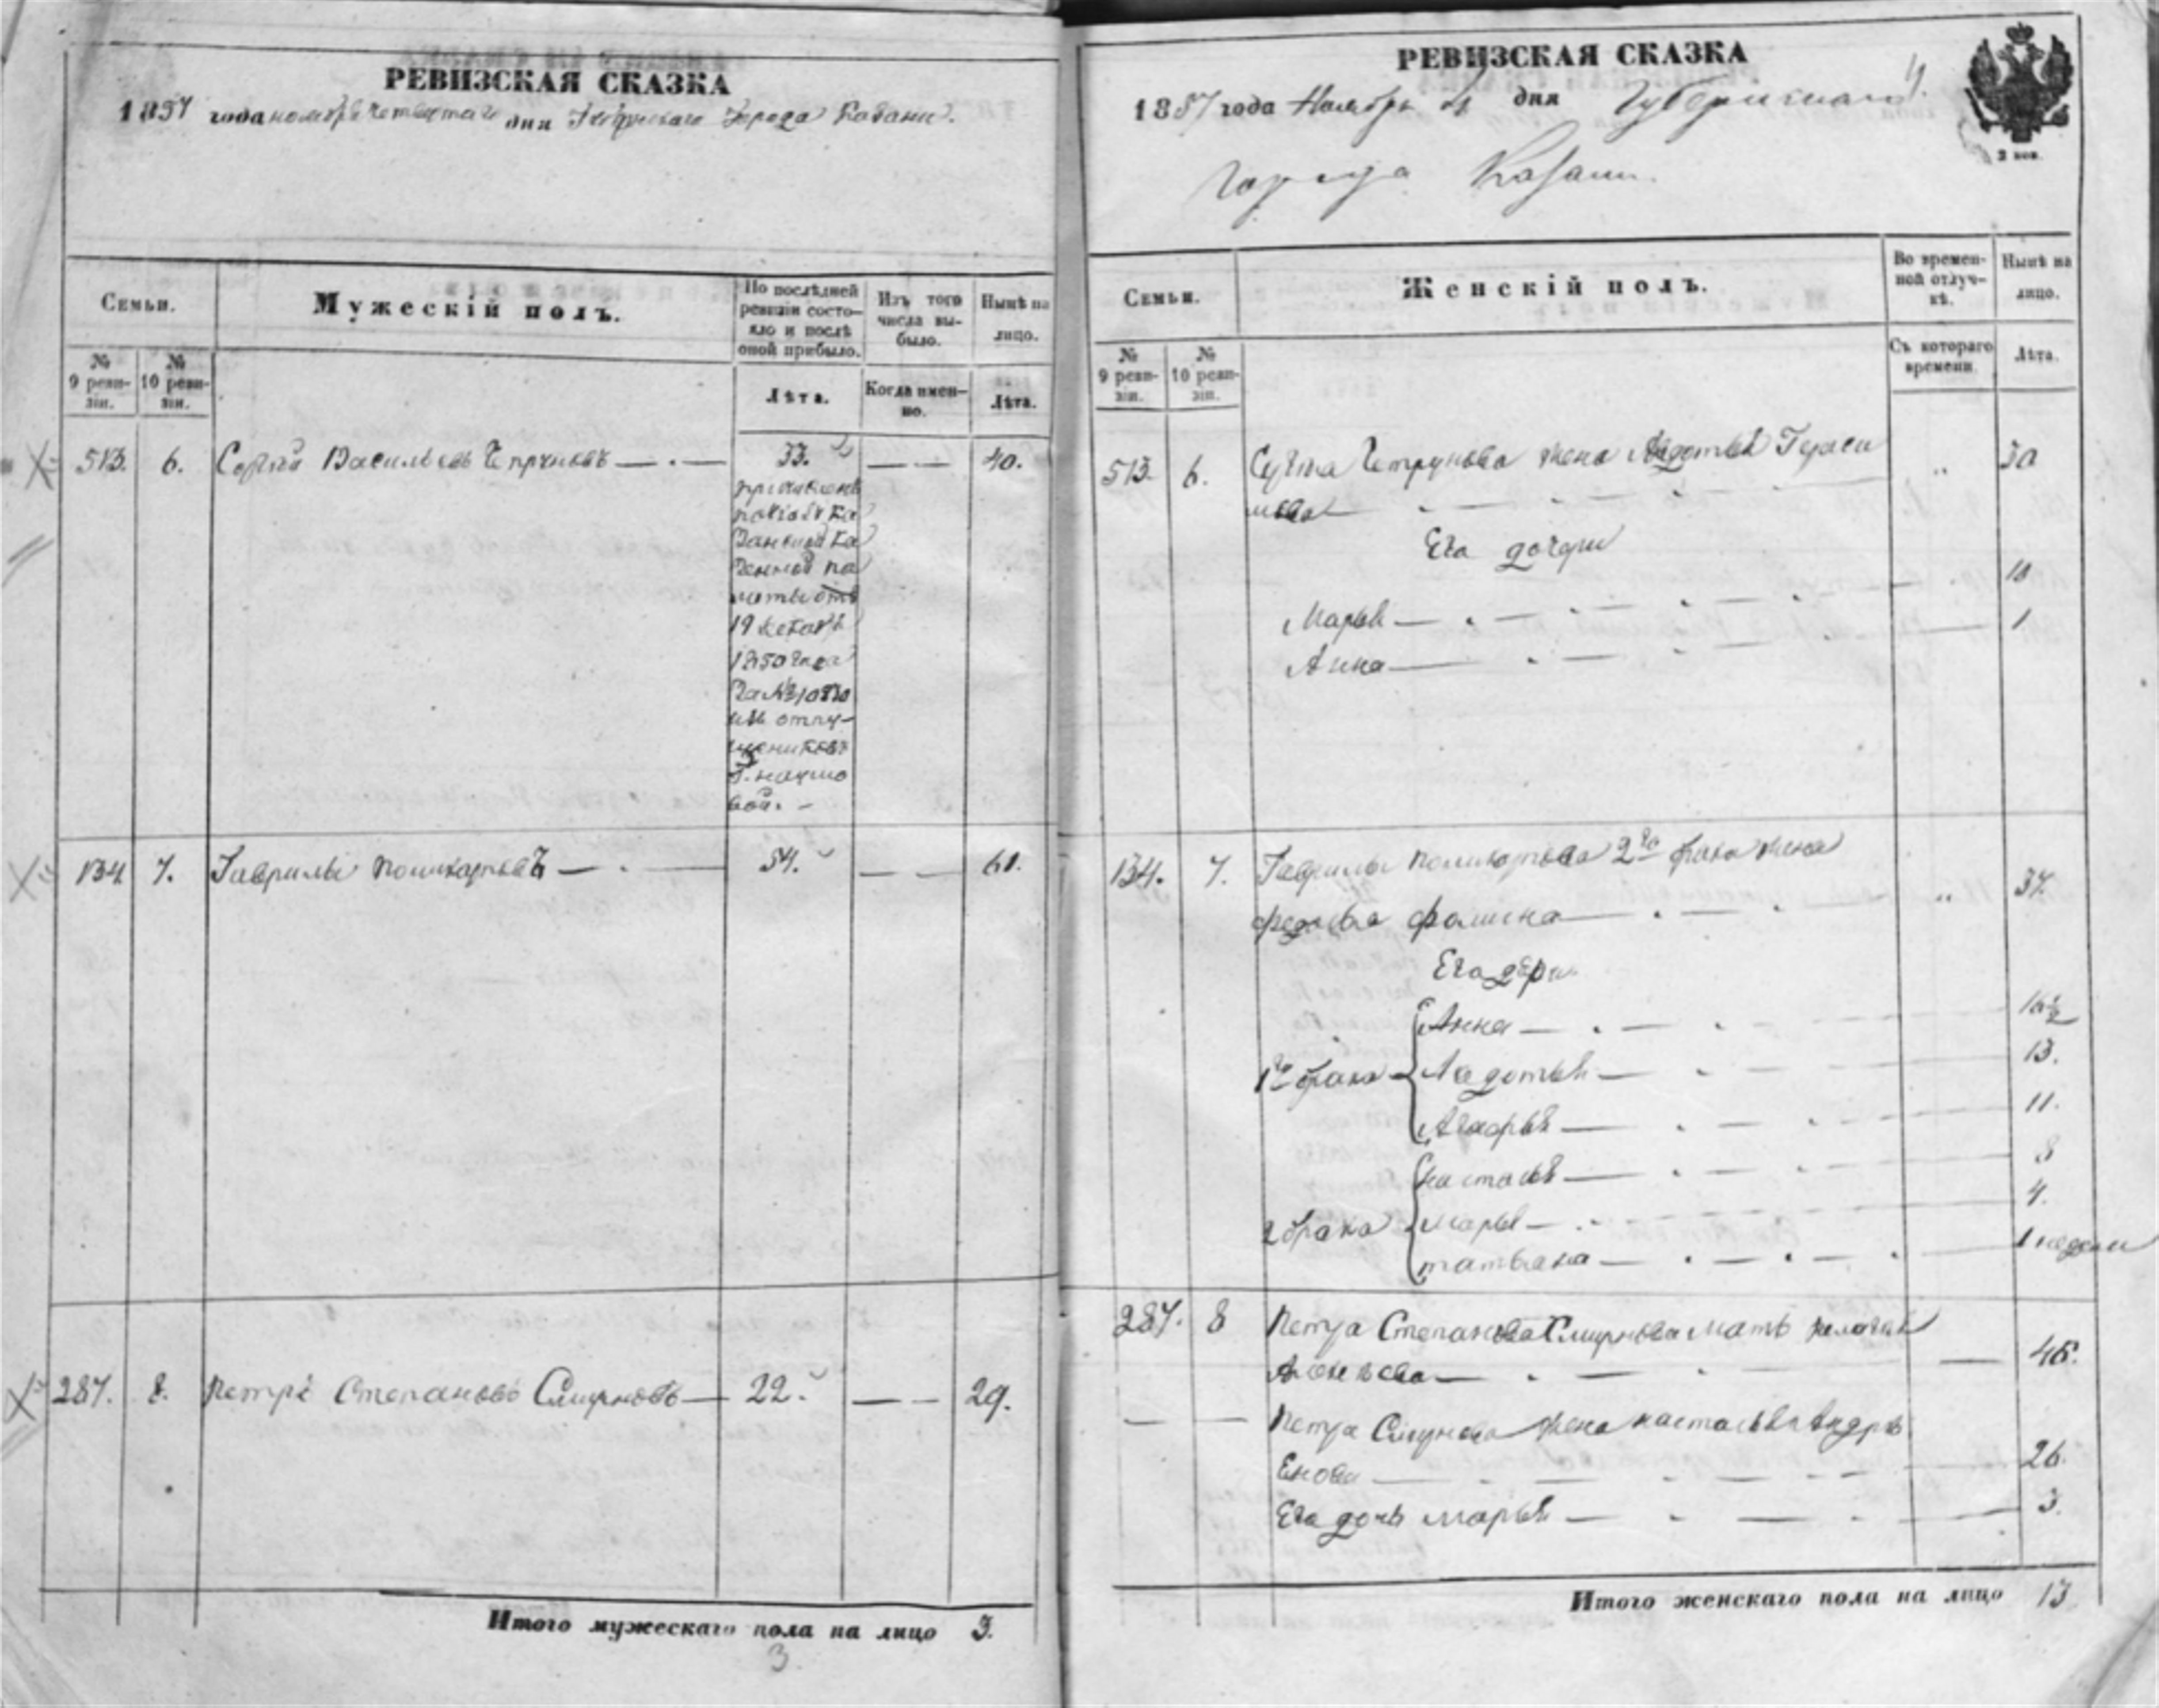 РЕВИЗСКАЯ СКАЗКА
1857 года ноября четвертаго дня Губернскаго Города Казани.
Семьи.
Мужескій полъ.
По послѣдней ревизіи состояло и послѣ оной прибыло.
Изъ того числа выбыло.
Нынѣ на лицо.
№ 9 ревизіи.
№ 10 ревизіи.
Лѣта.
Когда именно.
Лѣта.
513. 6. Сергей Васильевъ 33. 40.
1850 года
отпу-
щениковъ
134 7. Гаврилы Поликарповъ 54. 61.
287. 8. Петръ Степановъ Смирновъ 22. 29.
Итого мужескаго пола на лицо 3.
3
РЕВИЗСКАЯ СКАЗКА
4
1857 года Ноября 4 дня Губернскаго
города Казани.
2 коп.
Семьи.
Женскій полъ.
Во временной отлучкѣ.
Нынѣ на лицо.
№ 9 ревизіи.
№ 10 ревизіи.
Съ котораго времени
Лѣта.
513. 6. жена Авдотья Гераси „ 30
мова
Его дочери
Марья 10
Анна 1
134. 7. Гаврилы Поликарпова 2го брака жена
Федосья Фомина „ 37.
Его дѣри
Анна 16½
1го брака Авдотья 13.
11.
Настасья 8
2 брака Марья 4.
татьяна 1 недели
287. 8 Петра Степанова Смирнова мать
46.
Петра Смирнова жена настасья Андре
Енова 26.
Его дочь марья 3.
Итого женскаго пола на лицо 13